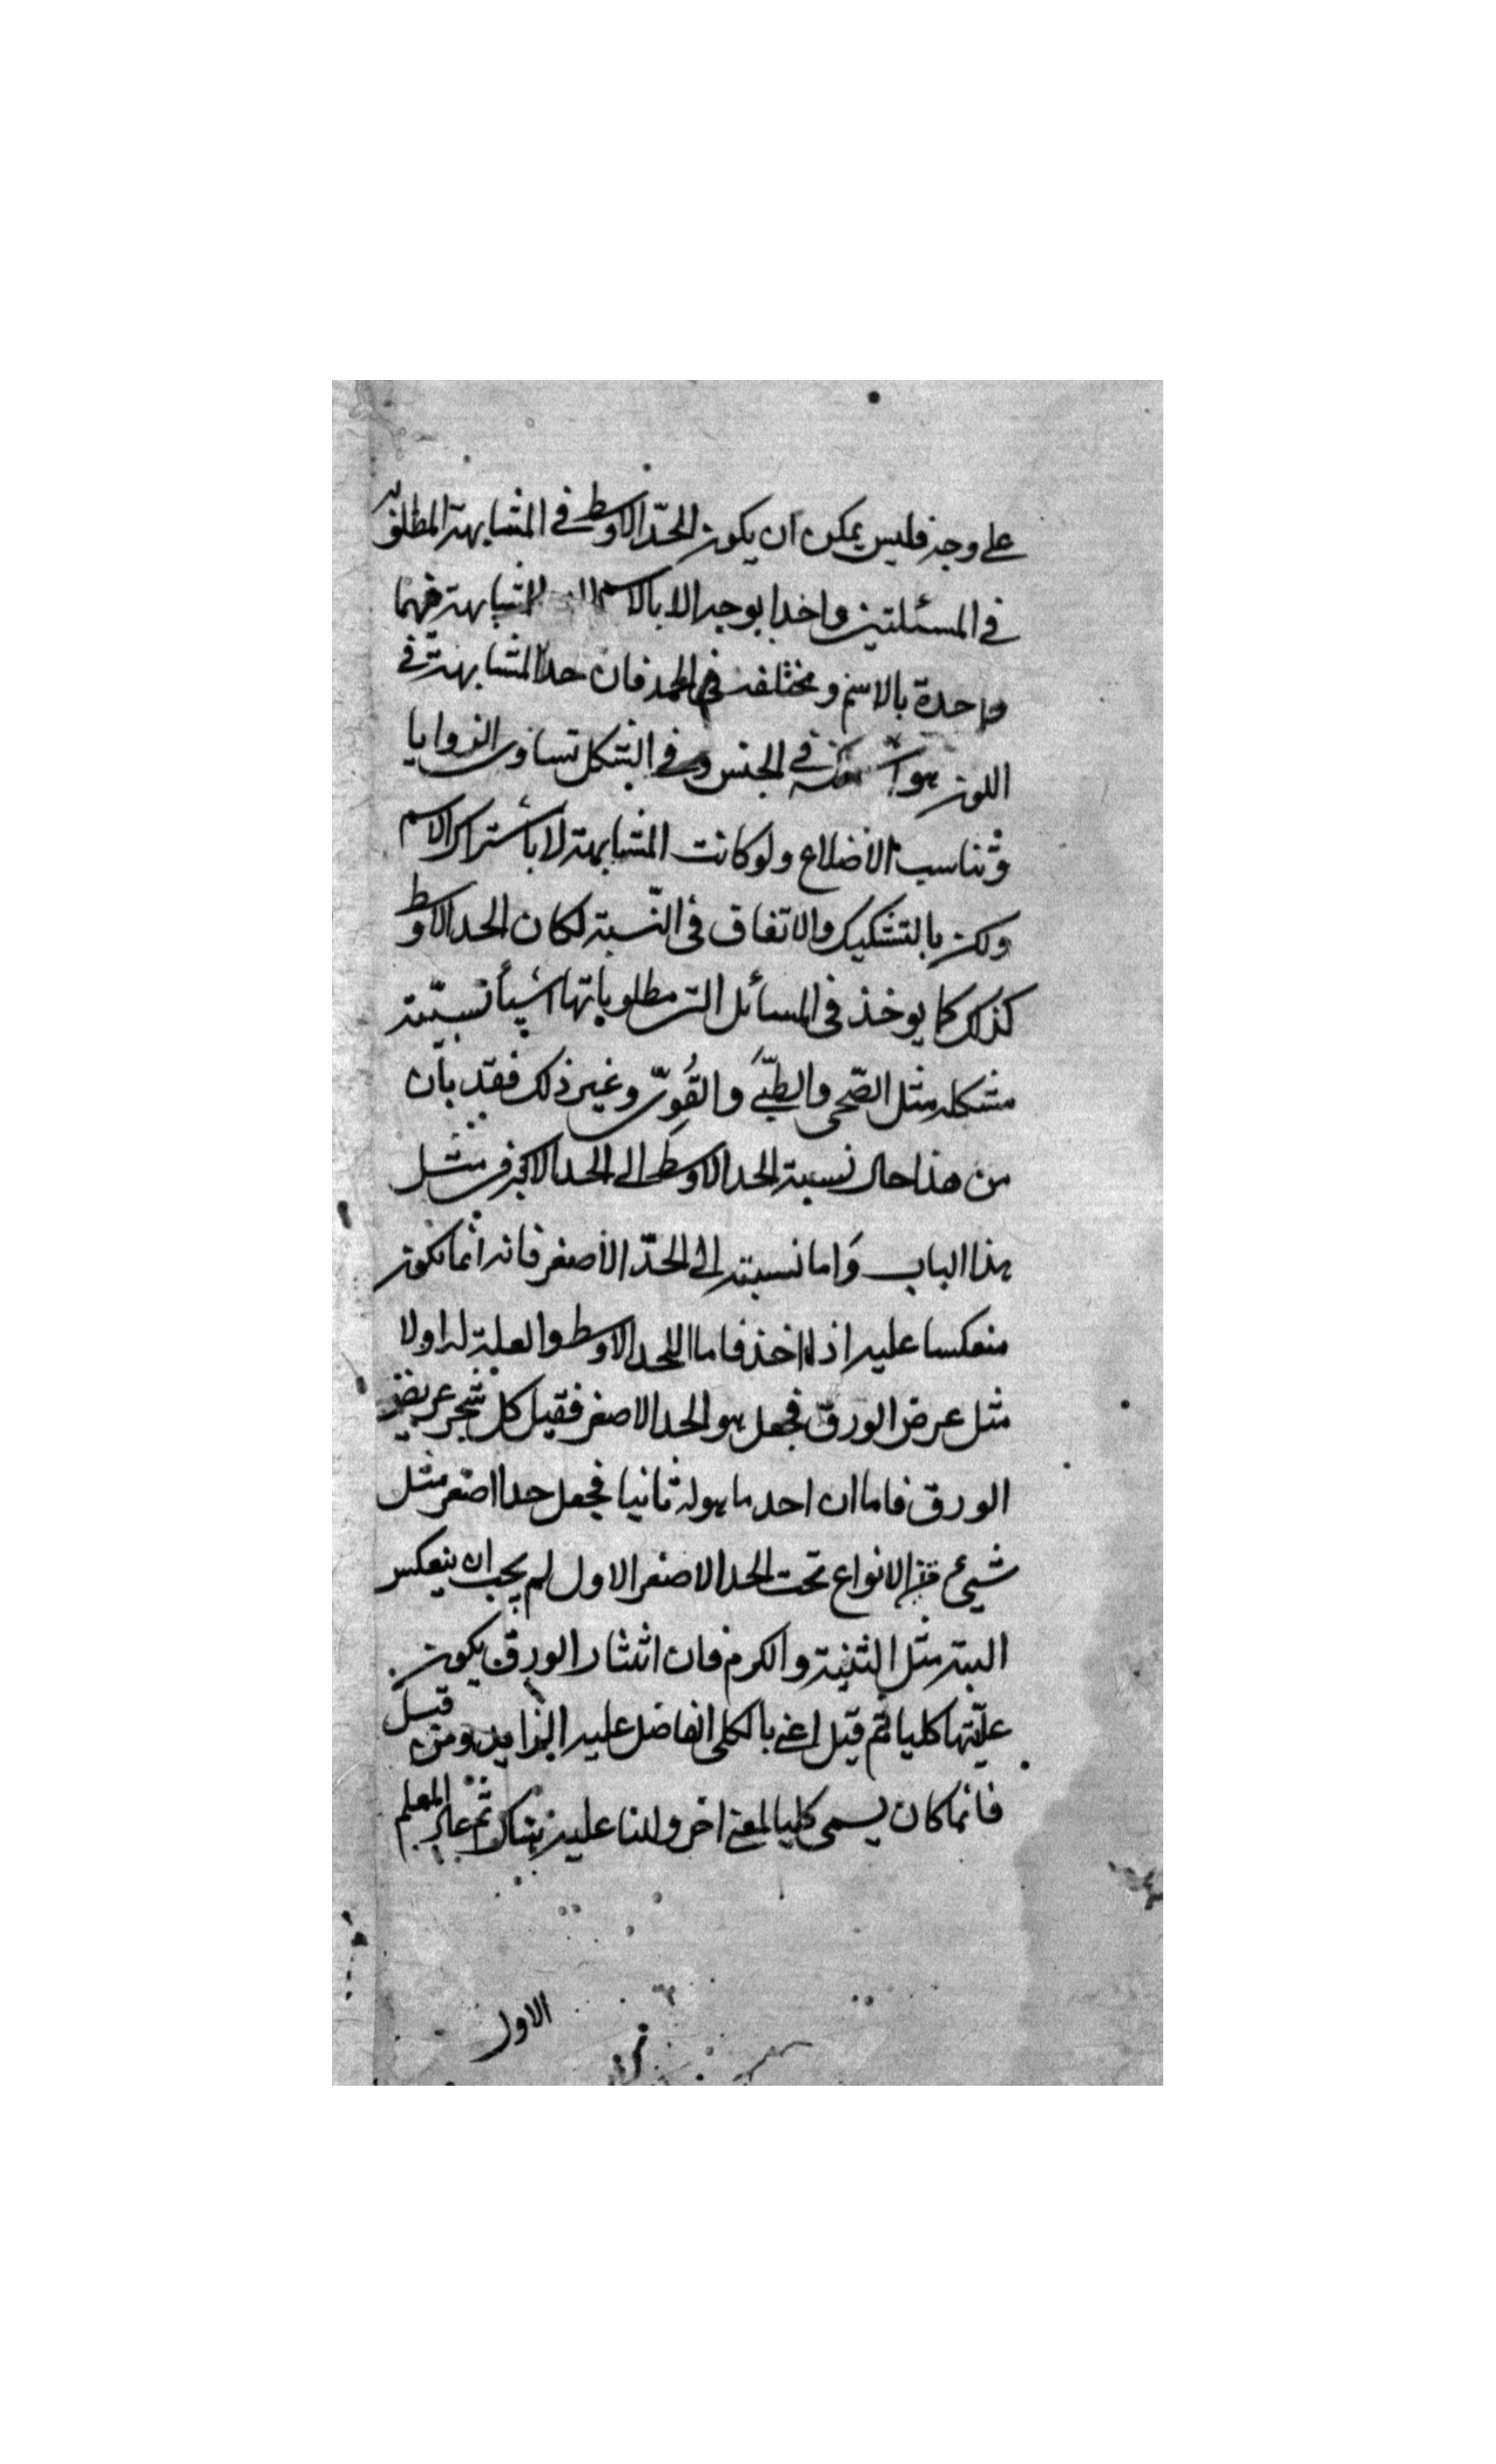 على وجه فليس يمكن ان يكون الحدّ الاوسط فى المشابهة المطلوبه
فى المسئلتين واحدا بوجه الا بالاسم المشابهة فيهما
واحدة بالاسم ومختلفة فى الحد فان حد المشابهة فى
اللون هو فى الجنس وفى الشكل تساوى الزوايا
وتناسب الاضلاع ولو كانت المشابهة لا بأشتراك الاسم
ولكن بالتشكيك والاتفاق فى النّسبة لكان الحد الاوسط
كذلك كما يوخذ فى المسائل التى مطلوباتها اشيأ نسبيّة
مشكله مثل الصّحى والطّبّى والقُوِىّ وغير ذلك فقد بان
من هذا حال نسبة الحد الاوسط الى الحد الاكبر فى مثل
هذا الباب وَاما نسبته الى الحدّ الاصغر فانه انما يكون
منعكسا عليه اذا اخذ فاما الحد الاوسط والعلة له اولا
مثل عرض الورق فجعل هو الحد الاصغر فقيل كل شجر عريض
الورق فاما ان احد ما هو له ثانيا فجعل حدا اصغر مثل
شيئ من الانواع تحت الحد الاصغر الاول لم يجب ان ينعكس
البته مثل التينة والكرم فان انتثار الورق يكون
علّتها كليا ثم قيل اعنى بالكلى الفاضل عليه الزايد ومن قبل
فانما كان يسمى كليا لمعنى اخر ولنا عليه هناك ثم عاد المعلم
الاول